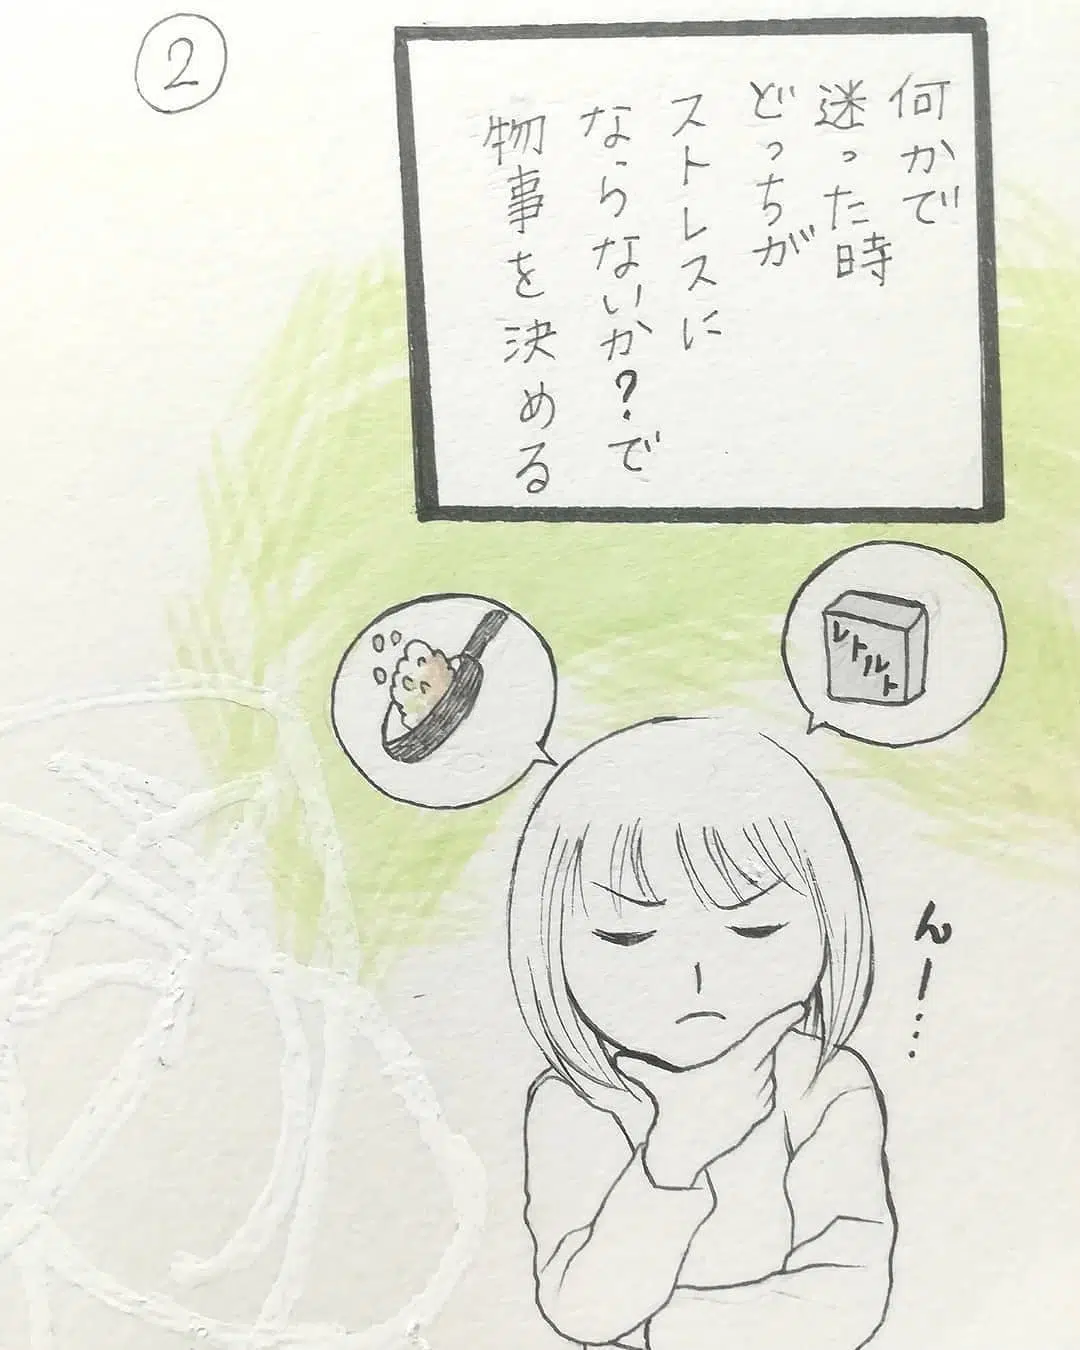 ②
何かで
迷った時
どっちが
ストレスに
ならないか?で
物事を決める
レトルト
んー…